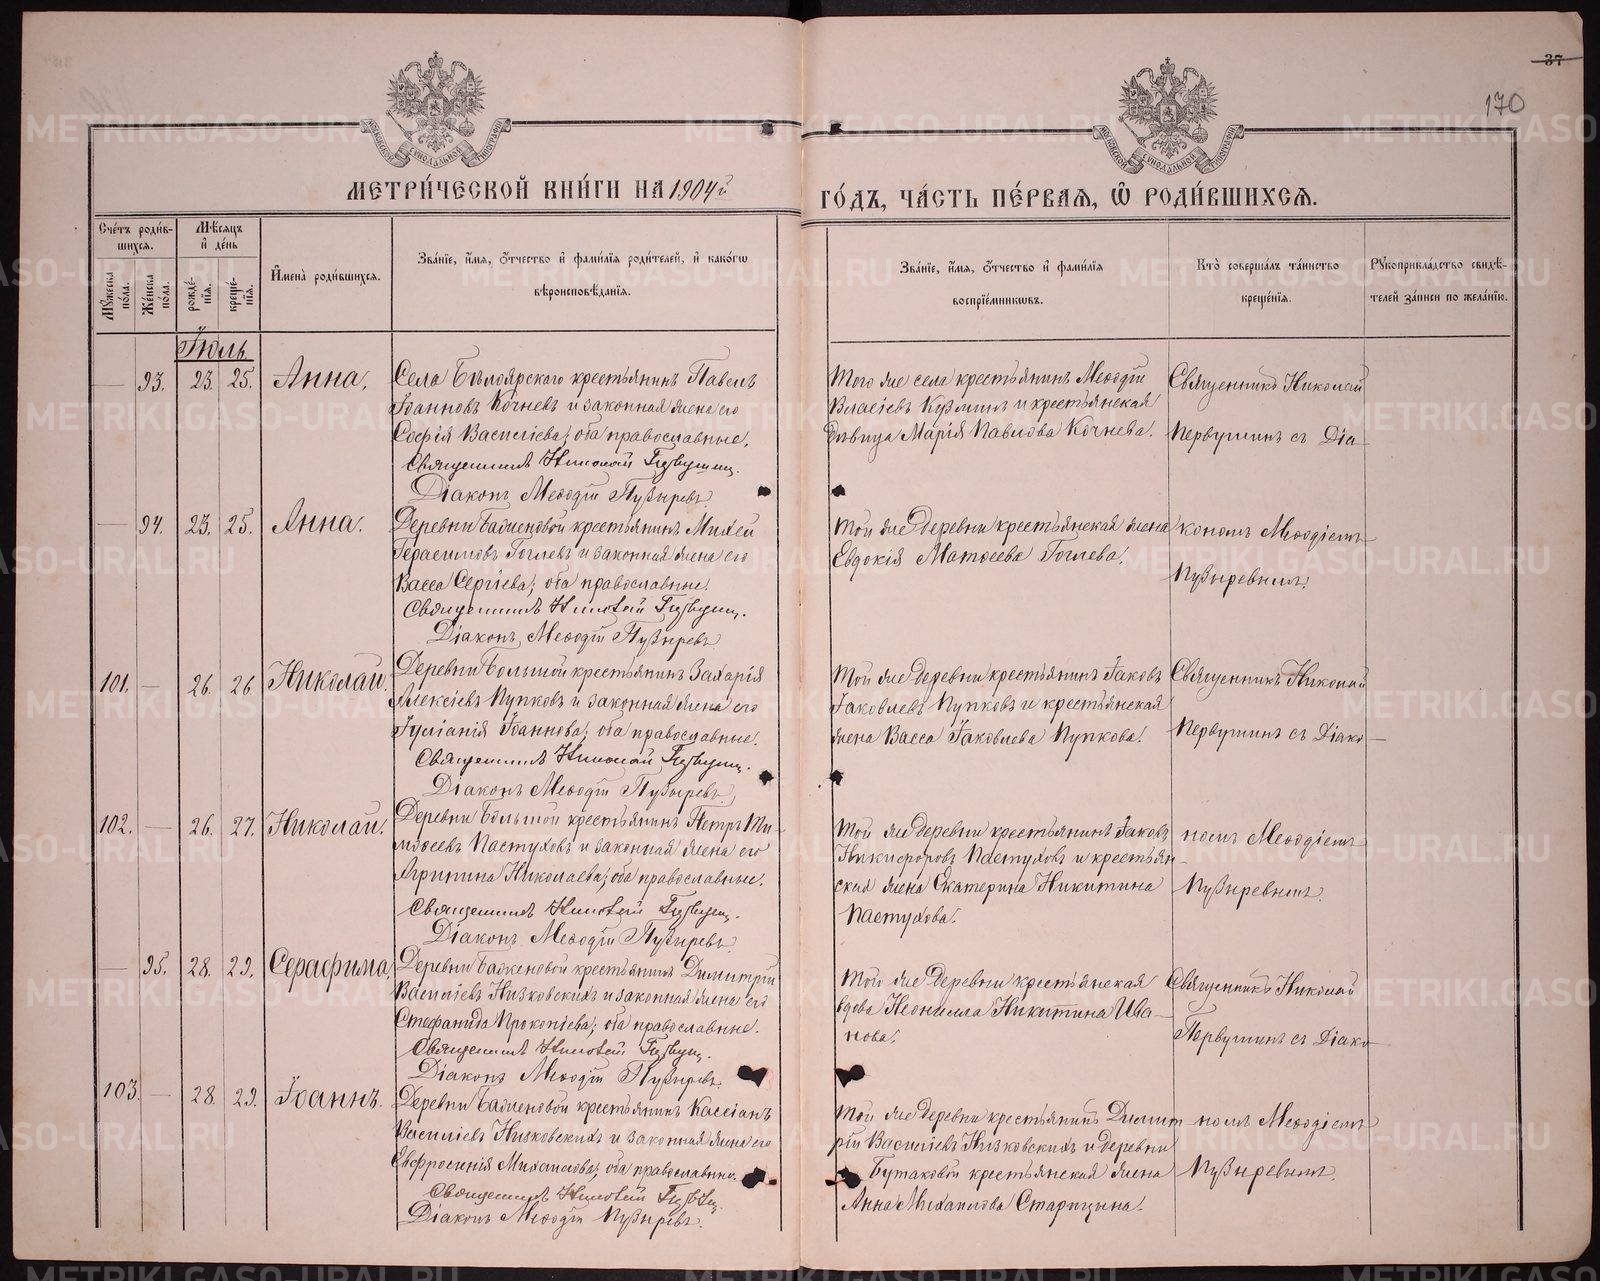 37
170
МОСКОВСКОЙ СѴНОДАЛЬНОЙ ТИПОГРАФІИ
МОСКОВСКОЙ СѴНОДАЛЬНОЙ ТИПОГРАФІИ
МЕТРИ́ЧЕСКОЙ КНИ́ГИ НА 1904й
ГО́ДЪ, ЧА́СТЬ ПЕ́РВАЯ, Ѡ҆ РОДИ́ВШИХСЯ.
Сче́тъ роди́в-
шихся.
Мѣ́сяцъ
и҆ де́нь
Мꙋ́жеска по́ла.
Же́нска по́ла.
рожде́-
нїѧ.
креще́-
нїѧ.
И҆мена̀ роди́вшихся.
Зва́нїе, и҆́мя, ѻ҆́тчество и҆ фами́лїя роди́телей, и҆ како́гѡ
вѣроисповѣ́данїя.
Зва́нїе, и҆́мя, ѻ҆́тчество и҆ фами́лїя
воспрїе́мникѡвъ.
Кто̀ соверша́лъ та́инство
креще́нїя.
Рꙋкоприкла́дство свидѣ́-
телей за́писи по жела́нїю.
Іюль
— 93. 23. 25. Анна.
Села Бѣлоярского крестьянинъ Павелъ
Іоанновъ Кочневъ и законная жена его
Софія Василіева; оба православные.
Священникъ Николай Первушинъ.
Діаконъ Меѳодій Пузыревъ
Того же села крестьянинъ Меѳодій
Власіевъ Кузминъ и крестьянская
дѣвица Марія Павлова Кочнева.
Священникъ Николай
Первушинъ съ Діа-
— 94. 23. 25. Анна.
Деревни Баженовой крестьянинъ Михей
Герасимовъ Гоглевъ и законная жена его
Васса Сергіева; оба православные.
Священникъ Николай Первушинъ.
Діаконъ Меѳодій Пузыревъ
Той же деревни крестьянская жена
Евдокія Матѳеева Гоглева.
кономъ Меѳодіемъ
Пузыревымъ.
101. — 26. 26. Николай.
Деревни Большой крестьянинъ Захарія
Алексіевъ Пупковъ и законная жена его
Іуліанія Іоаннова; оба православные.
Священникъ Николай Первушинъ.
Діаконъ Меѳодій Пузыревъ.
Той же деревни крестьянинъ Іаковъ
Іаковлевъ Пупковъ и крестьянская
жена Васса Іаковлева Пупкова.
Священникъ Николай
Первушинъ съ Діако-
102. — 26. 27. Николай.
Деревни Большой крестьянинъ Петръ Ти-
моѳеевъ Пастуховъ и законная жена его
Агрипина Николаева; оба православные.
Священникъ Николай Первушинъ.
Діаконъ Меѳодій Пузыревъ
Той же деревни крестьянинъ Іаковъ
Никифоровъ Пастуховъ и крестьян-
ская жена Екатерина Никитина
Пастухова.
номъ Меѳодіемъ
Пузыревымъ.
— 95. 28. 29. Серафима.
Деревни Баженовой крестьянинъ Димитрій
Василіевъ Низковскихъ и законная жена его
Стефанида Прокопіева; оба православные.
Священникъ Николай Первушинъ.
Діаконъ Меѳодій Пузыревъ.
Той же деревни крестьянская
вдова Неонилла Никитина Ива-
нова.
Священникъ Николай
Первушинъ съ Діако-
103. — 28. 29. Іоаннъ.
Деревни Баженовой крестьянинъ Кассіанъ
Василіевъ Низковскихъ и законная жена его
Евфросинія Михаилова; оба православные.
Священникъ Николай Первушинъ.
Діаконъ Меѳодій Пузыревъ.
Той же деревни крестьянинъ Димит-
рій Василіевъ Низковскихъ и деревни
Бутаковой крестьянская жена
Анна Михаилова Старицына.
номъ Меѳодіемъ
Пузыревымъ.
METRIKI.GASO-URAL.RU